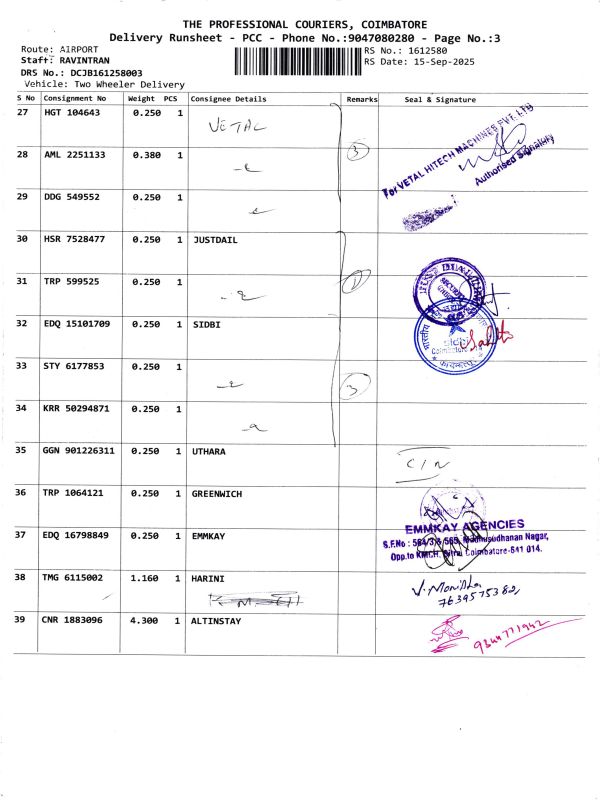 THE PROFESSIONAL COURIERS, COIMBATORE
Delivery Runsheet - PCC - Phone No.:9047080280 - Page No.:3
Route: AIRPORT
RS No.: 1612580
Staff: RAVINTRAN
RS Date: 15-Sep-2025
DRS No.: DCJB161258003
Vehicle: Two Wheeler Delivery
S No Consignment No Weight PCS Consignee Details Remarks Seal & Signature
27 HGT 104643 0.250 1 VETAL
For VETAL HITECH MACHINES PVT. LTD
Authorised Signatory
28 AML 2251133 0.380 1 3
29 DDG 549552 0.250 1
30 HSR 7528477 0.250 1 JUSTDAIL
31 TRP 599525 0.250 1
32 EDQ 15101709 0.250 1 SIDBI
Coimbatore
33 STY 6177853 0.250 1 3
34 KRR 50294871 0.250 1
35 GGN 901226311 0.250 1 UTHARA C/N
36 TRP 1064121 0.250 1 GREENWICH
37 EDQ 16798849 0.250 1 EMMKAY
EMMKAY AGENCIES
S.F.No : 564/3 & 565, Madhusudhanan Nagar,
Opp.to KMCH, Coimbatore-641 014.
38 TMG 6115002 1.160 1 HARINI
7639575382
39 CNR 1883096 4.300 1 ALTINSTAY
9344771942